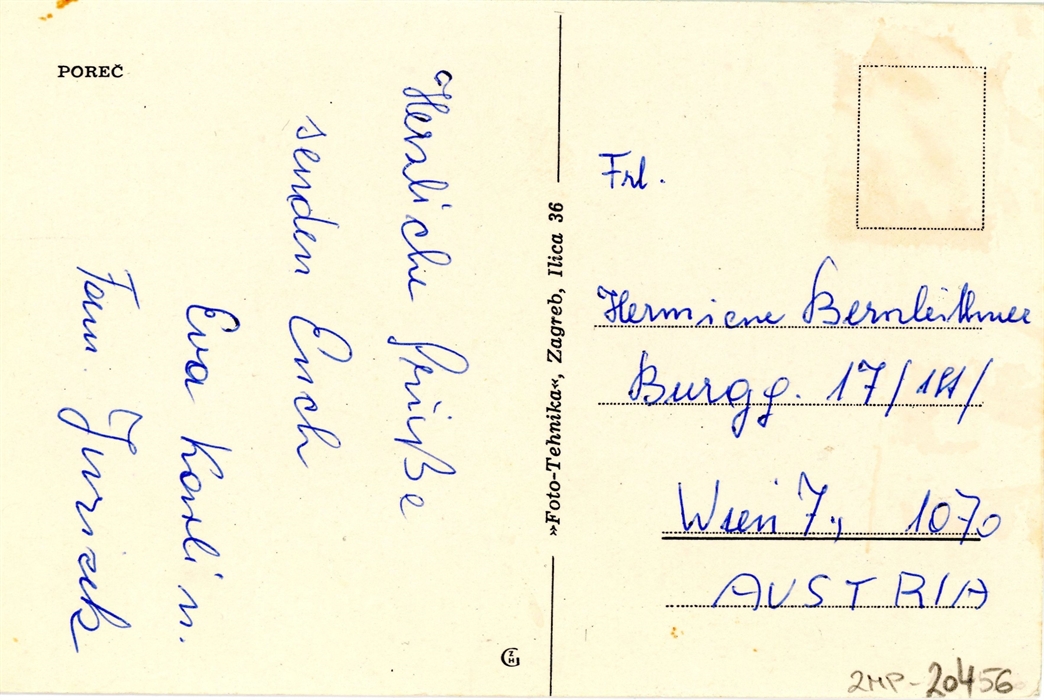 POREČ
Herzliche Grüße
senden Euch
Eva Karli u.
Fam. Juricek
»Foto-Tehnika«, Zagreb, Ilica 36
Frl.
Hermiene Bernleithner
Burgg. 17/
Wien 7., 1070
AUSTRIA
ZMP-20456